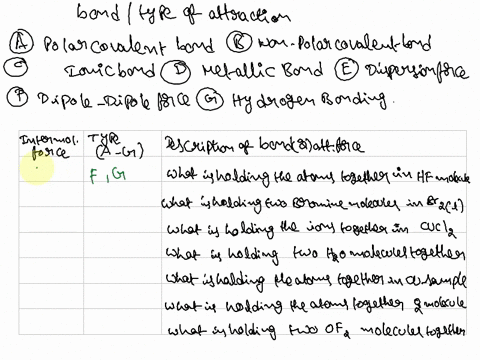 bond / type of attraction
A Polar covalent bond B Non-Polar covalent bond
C Ionic bond D Metallic Bond E Dispersion force
F Dipole-Dipole force G Hydrogen Bonding.
Intermol. force TYPE (A-G) Description of bond (or) att. force
F, G What is holding the atoms together in HF molecule
what is holding two Bromine molecules in Br2(l)
what is holding the ions together in CuCl2
what is holding two H2O molecules together
what is holding the atoms together in a sample
what is holding the atoms together 2 molecule
what is holding two OF2 molecules together